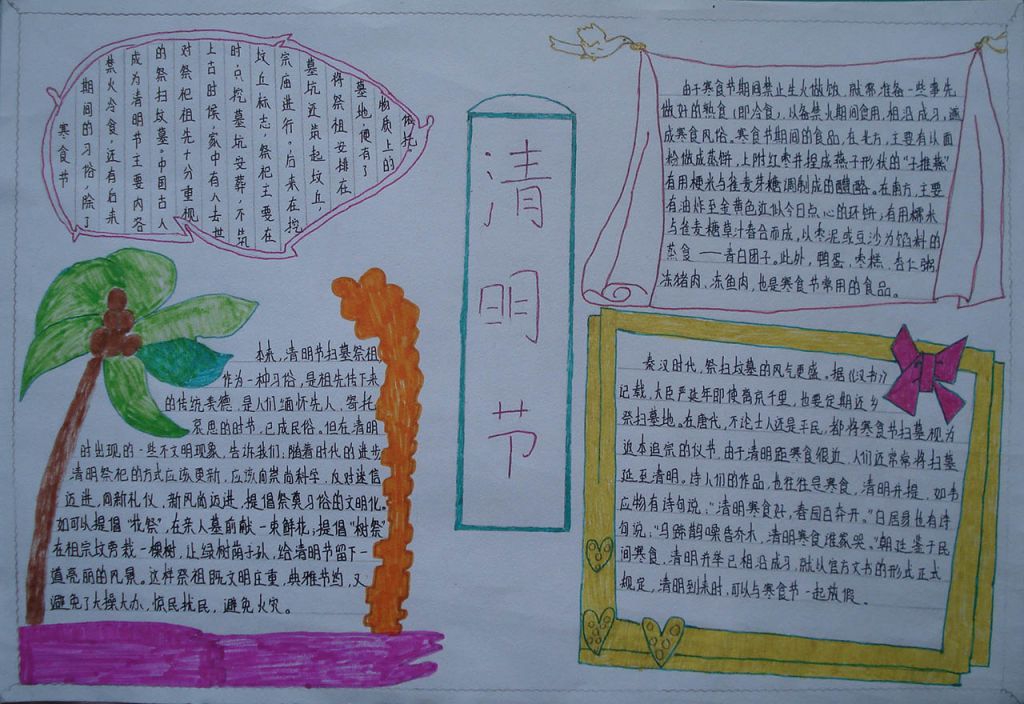 寒食节
期间的习俗，除了
禁火冷食，还有后来
成为清明节主要内容
的祭扫坟墓。中国古人
对祭祀祖先十分重视
上古时候，家中有人去世
时只挖墓坑安葬，不筑
坟丘标志，祭祀主要在
宗庙进行。后来在挖
墓坑还筑起坟丘，
将祭祖安排在
墓地，便有了
物质上的
依托。
清明节
由于寒食节期间禁止生火做饭，就需准备一些事先
做好的熟食（即冷食），以备禁火期间食用，相沿成习，遂
成寒食风俗。寒食节期间的食品，在北方，主要有以面
粉做成蒸饼，上附红枣并捏成燕子形状的“子推燕”
有用粳米与雀麦芽糖调制成的醴酪。在南方，主要
有油炸至金黄色近似今日点心的环饼，有用糯米
与雀麦糖草汁舂合而成，以枣泥或豆沙为馅料的
蒸食——青白团子。此外，鸭蛋、枣糕、杏仁粥、
冻猪肉、冻鱼肉，也是寒食节常用的食品。
本来，清明节扫墓祭祖
作为一种习俗，是祖先传下来
的传统美德，是人们缅怀先人、寄托
哀思的时节，已成民俗。但在清明
时出现的一些不文明现象，告诉我们：随着时代的进步
清明祭祀的方式应该更新，应该向崇尚科学，反对迷信
迈进，向新礼仪，新风尚迈进，提倡祭奠习俗的文明化。
如可以提倡“花祭”，在亲人墓前献一束鲜花；提倡“树祭”
在祖宗坟旁栽一棵树，让绿树荫子孙，给清明节留下一
道亮丽的风景。这样祭祖既文明庄重，典雅节约，又
避免了大操大办，惊民扰民，避免火灾。
秦汉时代，祭扫坟墓的风气更盛。据《汉书》
记载，大臣严延年即使离京千里，也要定期还乡
祭扫墓地。在唐代，不论士人还是平民，都将寒食节扫墓视为
返本追宗的仪节，由于清明距寒食很近，人们还常常将扫墓
延至清明。诗人们的作品，也往往是寒食、清明并提，如韦
应物有诗句说：“清明寒食好，春园百卉开。”白居易也有诗
句说：“乌啼鹊噪昏乔木，清明寒食谁家哭。”朝廷鉴于民
间寒食、清明并举已相沿成习，就以官方文书的形式正式
规定，清明到来时，可以与寒食节一起放假。